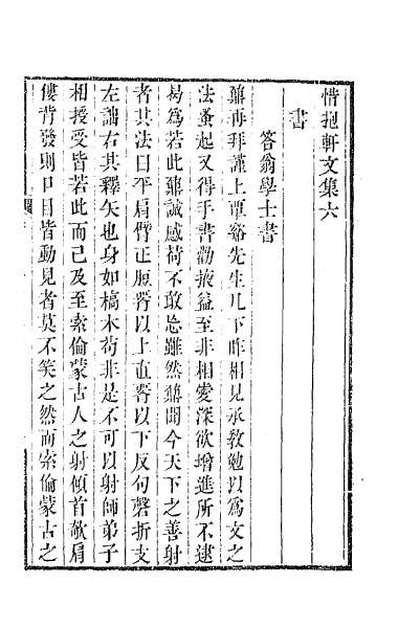 惜抱軒文集六
書
答翁學士書
鼐再拜謹上覃谿先生几下昨相見承教勉以爲文之
法蚤起又得手書勸掖益至非相愛深欲增進所不逮
曷爲若此鼐誠感荷不敢忘雖然鼐聞今天下之善射
者其法曰平肩臂正脰以上直以下反句磬折支
左詘右其釋矢也身如槁木苟非是不可以射師弟子
相授受皆若此而已及至索倫蒙古人之射傾首欹肩
僂背發則口目皆動見者莫不笑之然而索倫蒙古之